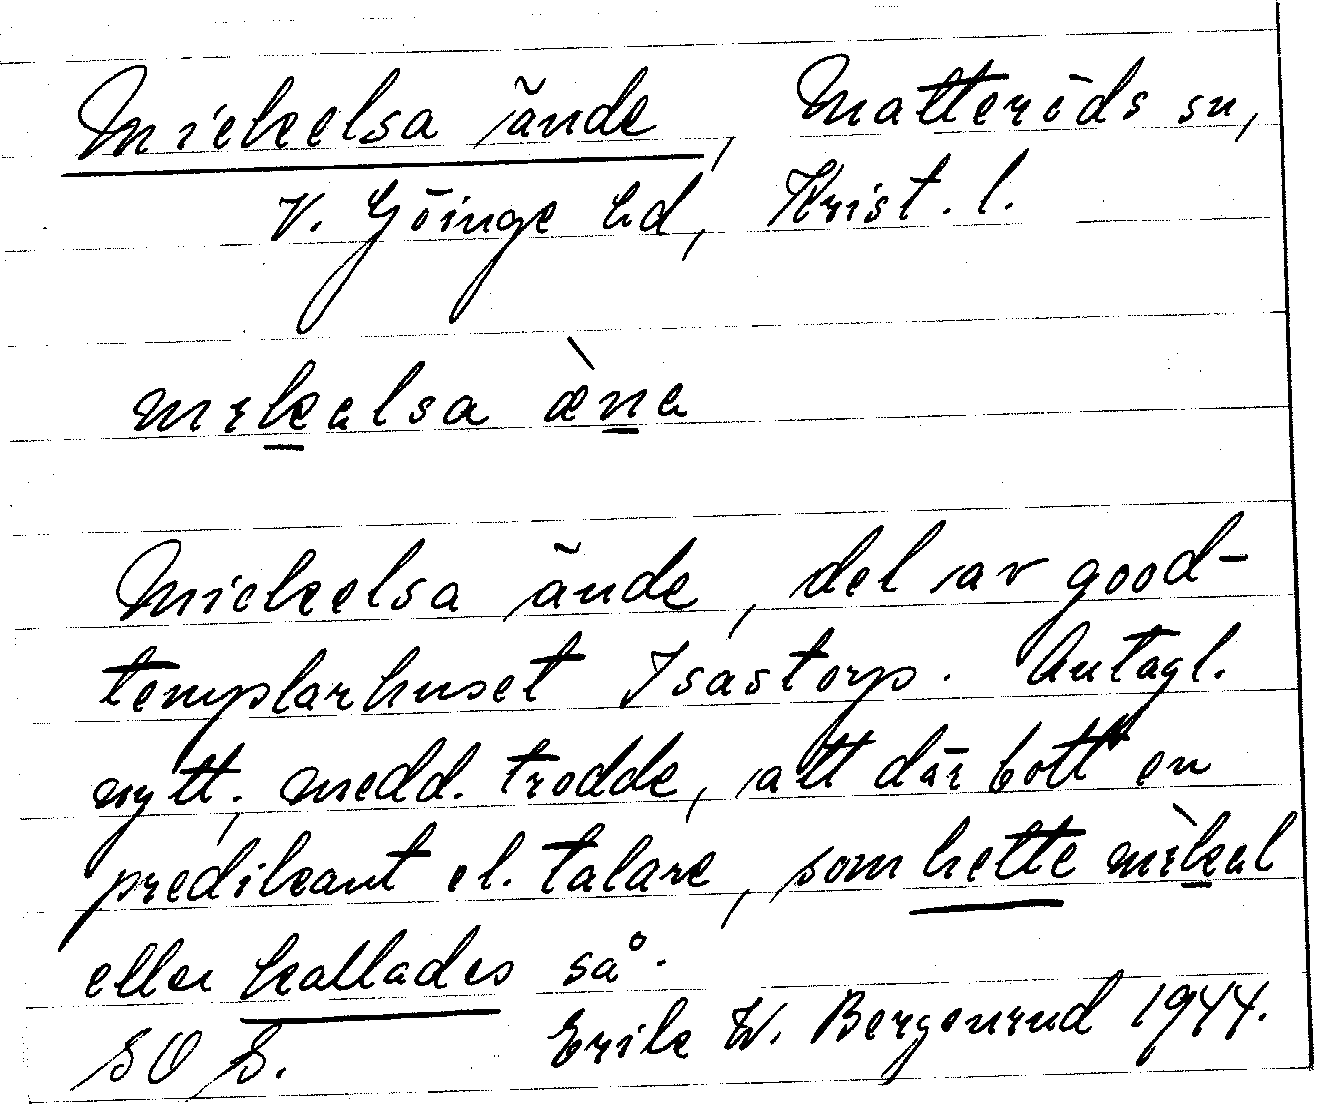 Mickelsa ände, Matteröds sn,
V. Göinge hd, Krist. l.
mɪkalsa æ̀na
Mickelsa ände, del av good-
templarhuset Isastorp. Antagl.
nytt; medd. trodde, att där bott en
predikant el. talare, som hette mɪ̀kal
eller kallades så.
SOS. Erik W. Bergenrud 1944.